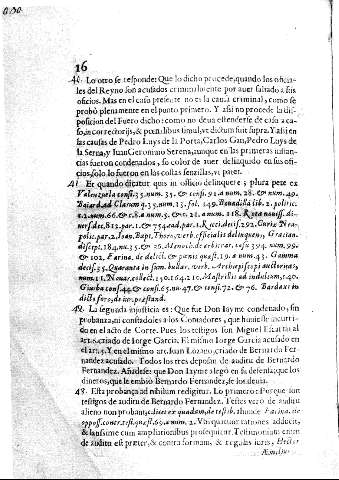 16
40. Lo otro se responde: Que lo dicho procede, quando los oficia-
les del Reyno son acusados criminalmente por auer faltado à sus
oficios. Mas en el caso presente no es la causa criminal, como se
probò plenamente en el punto primero. Y assi no procede la dis-
posicion del Fuero dicho: como no deua estenderse de casu à ca-
so, in correctorijs, & poenalibus simul, vt dictum fuit supra. Y assi en
las causas de Pedro Luys de la Porta, Carlos Gan, Pedro Luys de
la Serna, y Iuan Geronimo Serena, aunque en las primeras instan-
cias fueron condenados, so color de auer delinquido en sus ofi-
cios, solo lo fueron en las costas senzillas, vt patet.
41. Et quando dicatur quis in officio delinquere; plura pete ex
Valenzuela consi. 35. num. 35. & consi. 92. à num. 28. & num. 49.
Baiard. ad Claram q. 35. num. 15. fol. 149. Bonadilla lib. 2. politic.
num. 66. & 8. à num. 5. & 21. à num. 218. Rota nouiss. di-
uers. dec. 813. par. 1. & 754. ead. par. 1. Ricci decis. 292. Curia Nea-
polit. par. 2. Ioan. Bapt. Thoro, verb. officialis delinquens, Gratian.
discept. 184. nu. 35. & 26. Menoch. de arbitrar. casu 394. num. 99.
& 102. Farina. de delict. & poenis quaest. 19. à num. 43. Gamma
decis. 35. Quaranta in sum. bullar. verb. Archiepiscopi auctoritas,
num. 1. Nouar. collect. 250. 164. 2. Mastrillo ad indultum, c. 40.
Giurba cons. 44. & consi. 65. nu. 47. & cons. 72. & 76. Bardaxi in
dicto foro, de iur. praestand.
42. La segunda injusticia es: Que fue Don Iayme condenado, sin
probanza, ni constadoles à los Contadores, que huuiesse incurri-
do en el acto de Corte. Pues los testigos son Miguel Escartin al
art. 5. criado de Iorge Garcia. El mismo Iorge Garcia acusado en
el art. 5. Y en el mismo art. Iuan Lozano, criado de Bernarda Fer-
nandez acusado. Todos los tres deposan de auditu de Bernardo
Fernandez. Añadese: que Don Iayme alegò en su defensa, que los
dineros, que le embiò Bernardo Fernandez, se los deuia.
43. Esta probança ad nihilum redigitur. Lo primero: Porque son
testigos de auditu de Bernardo Fernandez. Testes verò de auditu
alieno non probant, c. licet ex quadam, de testib. abunde Farina. de
opposit. contr. test. quaest. 69. à num. 2. Vbi quatuor rationes adducit,
& latissime cum ampliationibus prosequitur. Testimonium enim
de auditu est praeter, & contra formam, & regulas iuris, Hector
Æmilius